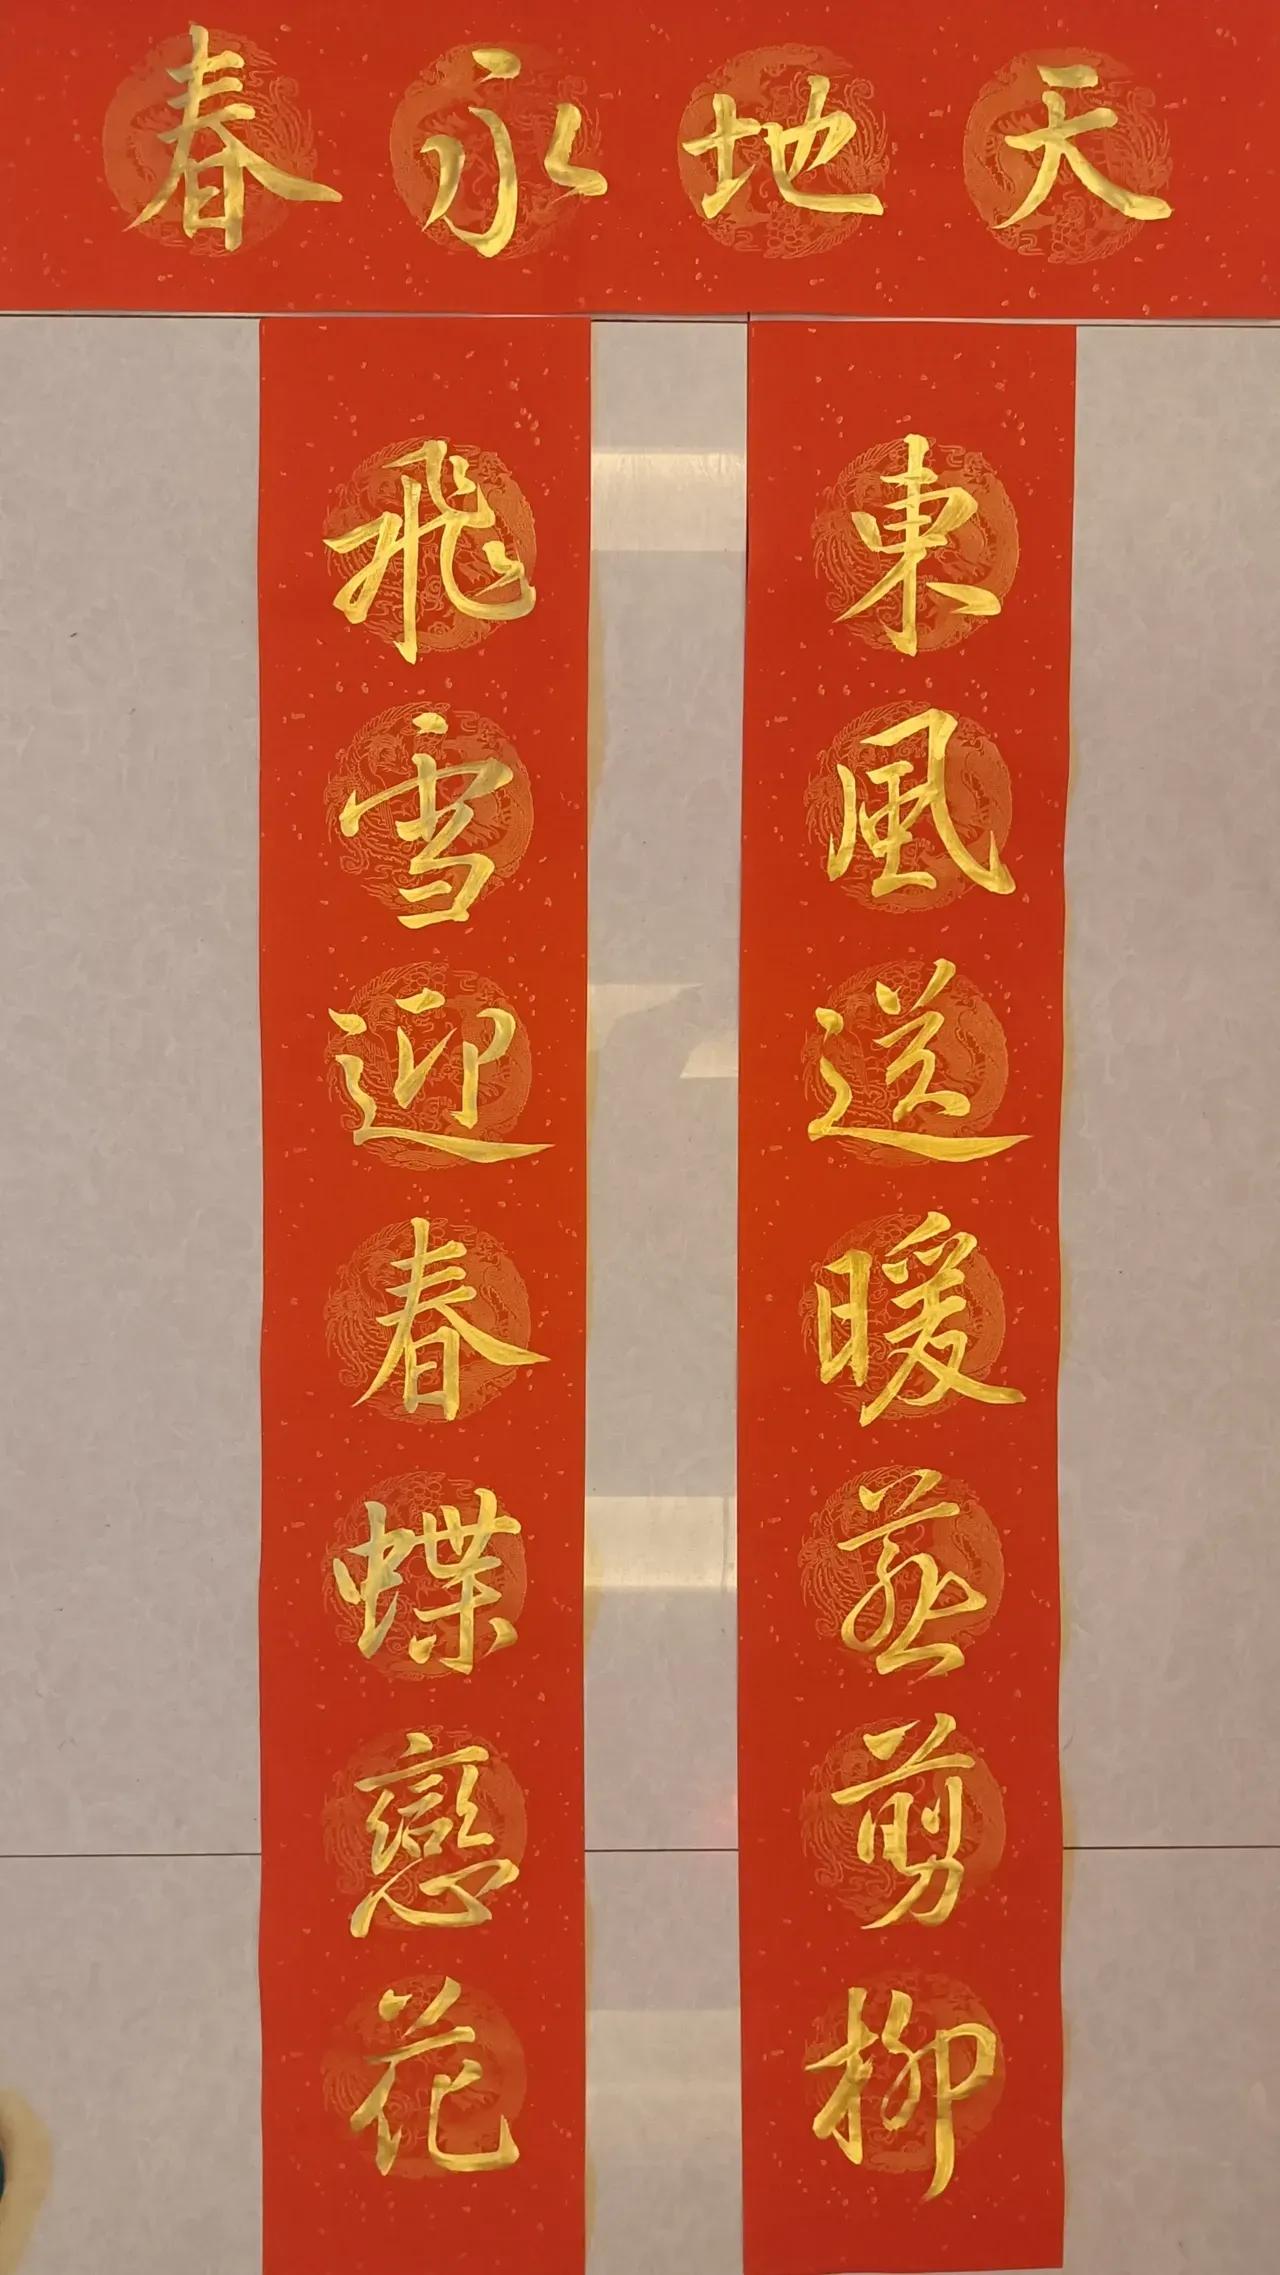 天地永春
東風送暖燕剪柳
飛雪迎春蝶戀花